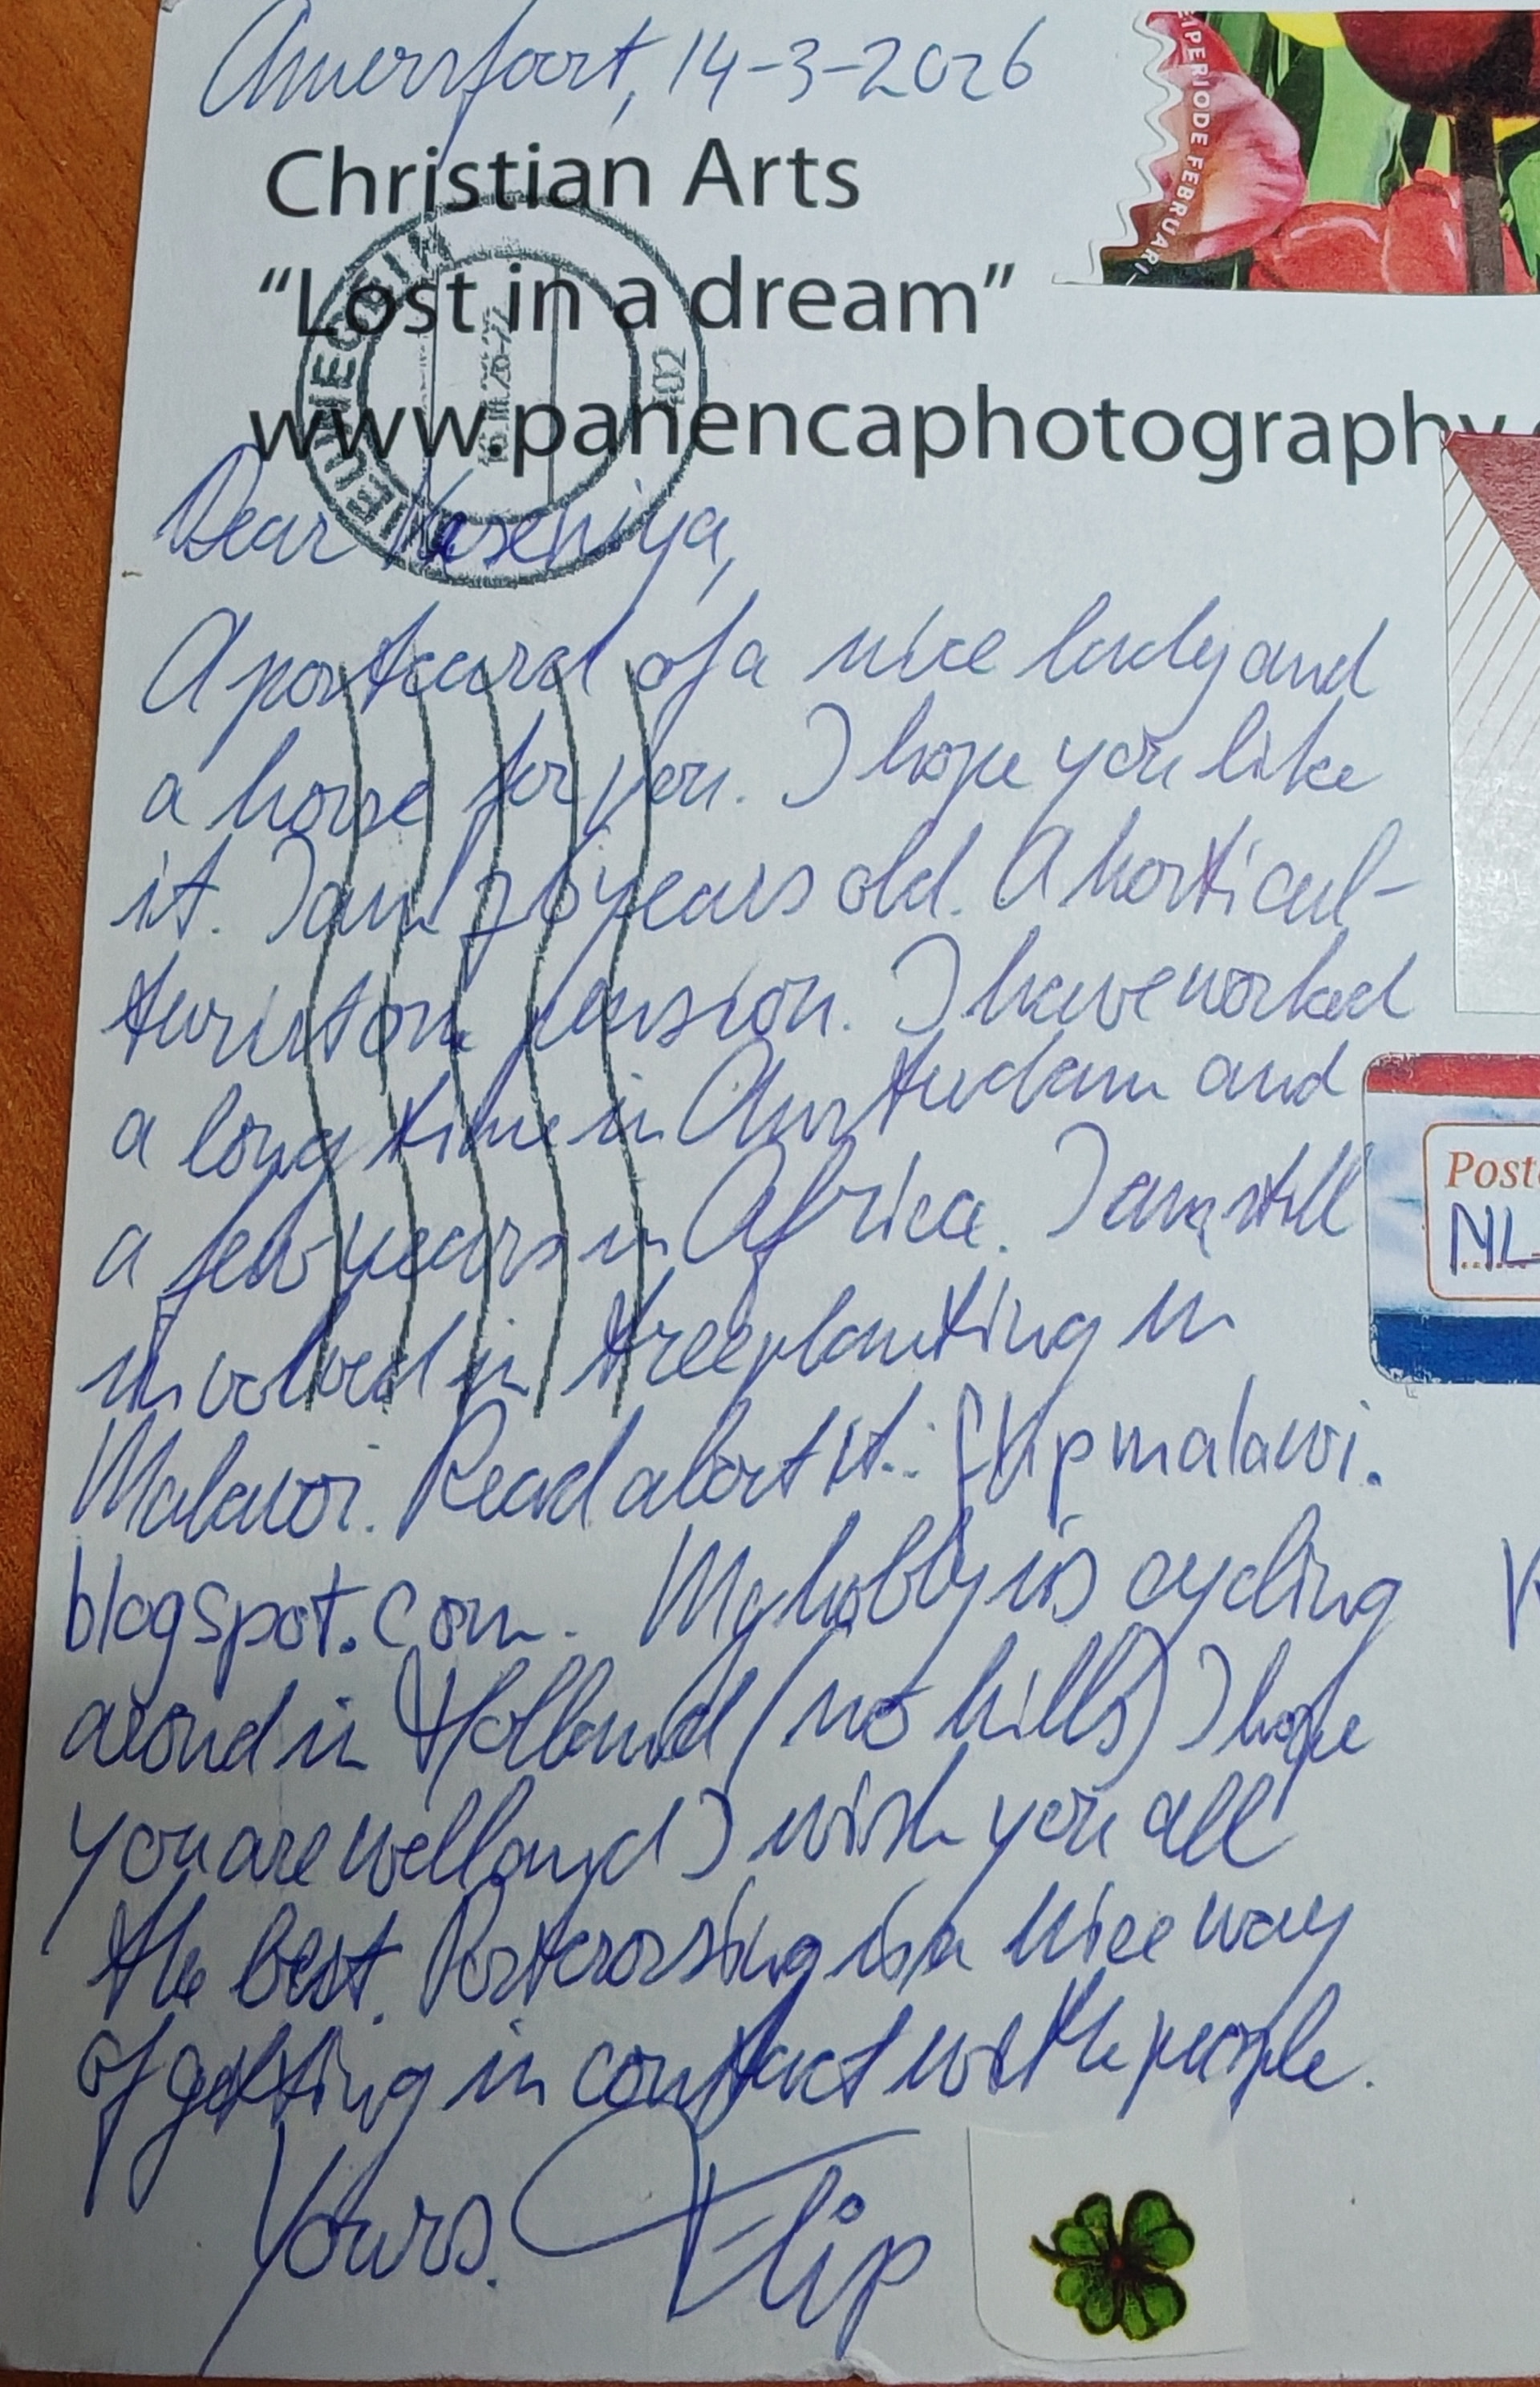 Amersfoort, 14-3-2026
EIPERIODE FEBRUARI-
Christian Arts
"Lost in a dream"
www.panencaphotography.
NIEUWEGEIN
16.III.26-22
402
Dear Kseniya,
A postcard of a nice lady and
a horse for you. I hope you like
it. I am 76 years old. A horticul-
turist on pension. I have worked
a long time in Amsterdam and
a few years in Africa. I am still
involved in treeplanting in
Malawi. Read about it: flipmalawi.
blogspot.com. My hobby is cycling
around in Holland (no hills) I hope
you are well and I wish you all
the best. Postcrossing is a nice way
of getting in contact with people.
Yours. Flip
Post
NL-